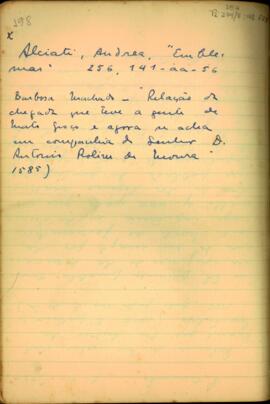 298
x
Alciati, Andrea, "Emble-
mas" 256, 141-aa-56
Barbosa Machado – "Relação da
chegada que teve a gente de
Mato Groço e agora se acha
em companhia do Senhor D.
Antonio Rolim de Moura"
1585)